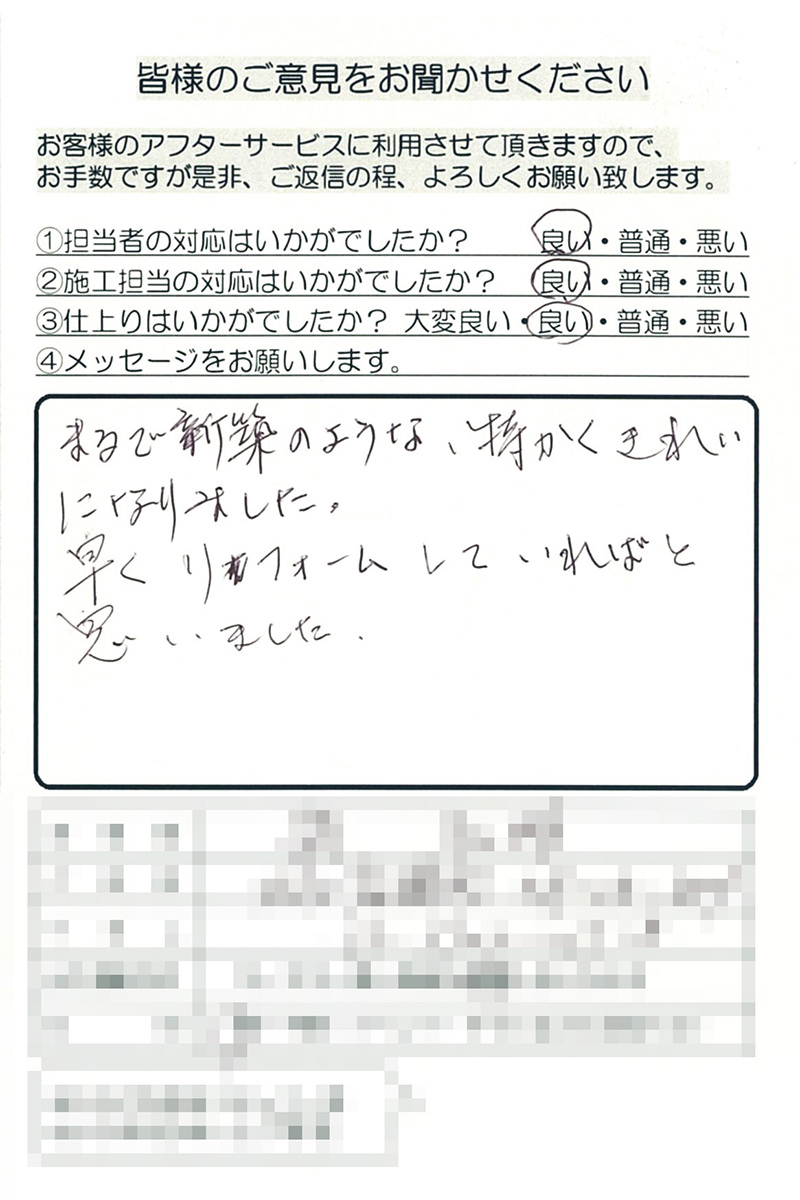 皆様のご意見をお聞かせください
お客様のアフターサービスに利用させて頂きますので、
お手数ですが是非、ご返信の程、よろしくお願い致します。
①担当者の対応はいかがでしたか？ 良い・普通・悪い
②施工担当の対応はいかがでしたか？ 良い・普通・悪い
③仕上りはいかがでしたか？ 大変良い・良い・普通・悪い
④メッセージをお願いします。
まるで新築のような、特かくきれい
になりました。
早くリフォームしていればと
思いました.